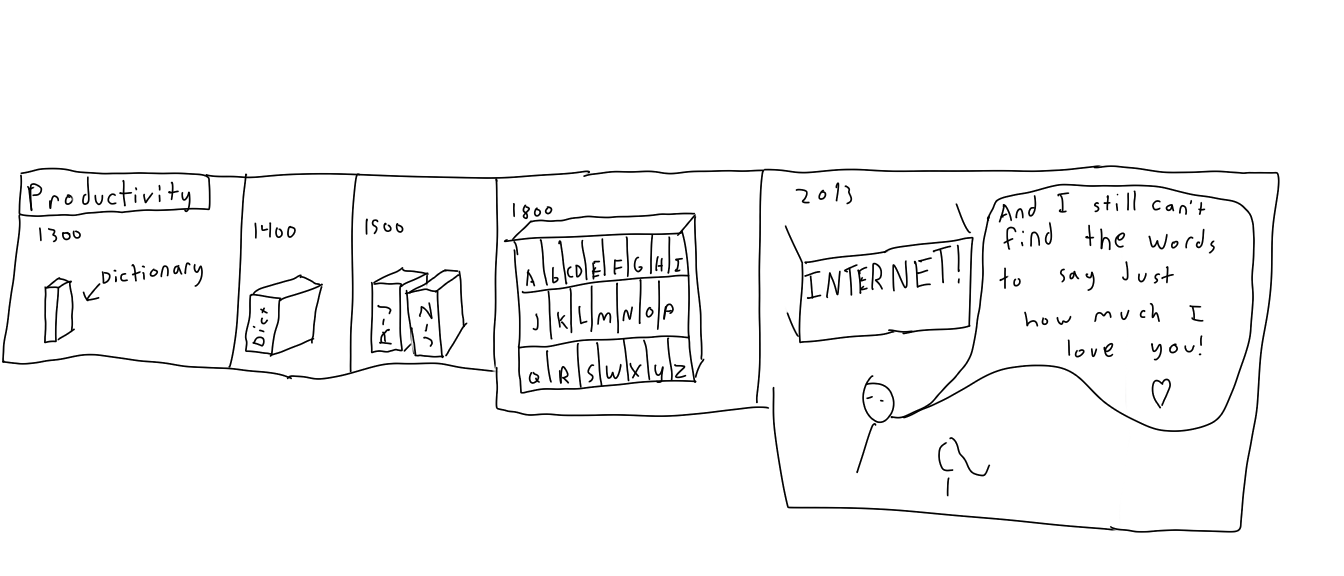 Productivity
1300
Dictionary
1400
Dict
1500
A-J
J-Z
1800
A b CD E F G H I
J K L M N O P
Q R S W X Y Z
2013
INTERNET!
And I still can't
find the words
to say Just
how much I
love you!